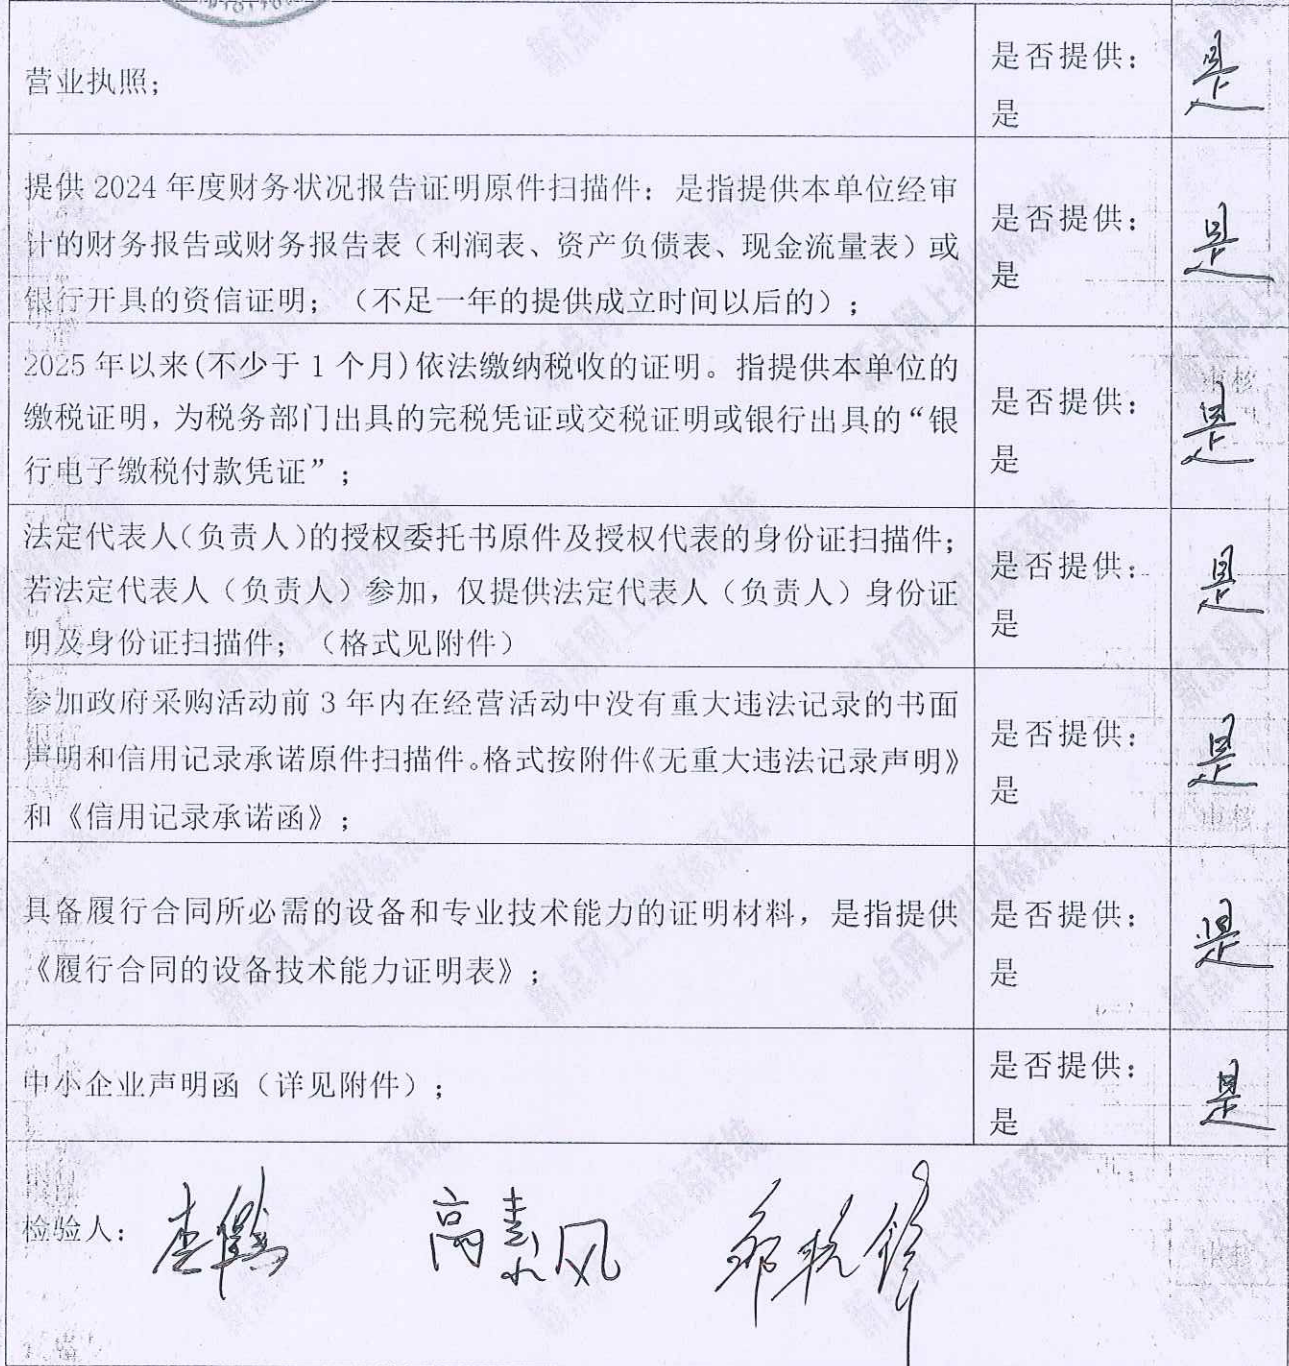 营业执照；
是否提供：
是
是
提供 2024 年度财务状况报告证明原件扫描件：是指提供本单位经审
计的财务报告或财务报告表（利润表、资产负债表、现金流量表）或
银行开具的资信证明；（不足一年的提供成立时间以后的）；
是否提供：
是
是
2025 年以来(不少于 1 个月)依法缴纳税收的证明。指提供本单位的
缴税证明，为税务部门出具的完税凭证或交税证明或银行出具的“银
行电子缴税付款凭证”；
是否提供：
是
是
法定代表人（负责人）的授权委托书原件及授权代表的身份证扫描件；
若法定代表人（负责人）参加，仅提供法定代表人（负责人）身份证
明及身份证扫描件；（格式见附件）
是否提供：
是
是
参加政府采购活动前 3 年内在经营活动中没有重大违法记录的书面
声明和信用记录承诺原件扫描件。格式按附件《无重大违法记录声明》
和《信用记录承诺函》；
是否提供：
是
是
具备履行合同所必需的设备和专业技术能力的证明材料，是指提供
《履行合同的设备技术能力证明表》；
是否提供：
是
是
中小企业声明函（详见附件）；
是否提供：
是
是
检验人：
高素风
新点网上招投标系统